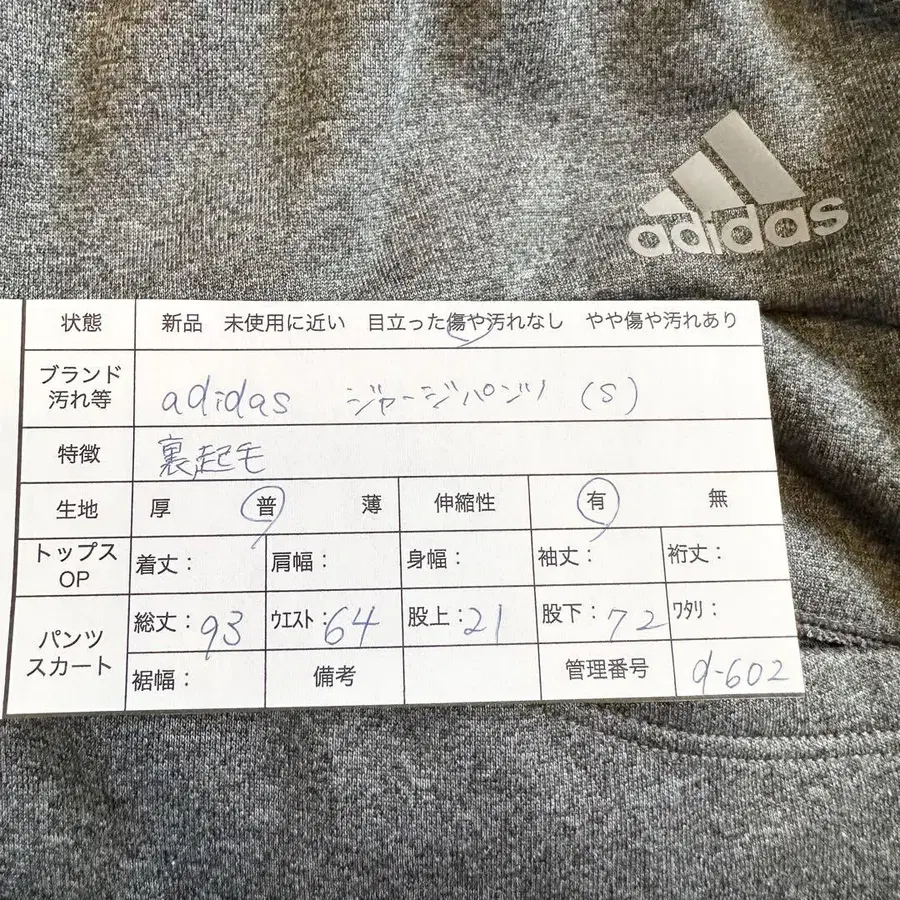 adidas
状態 新品 未使用に近い 目立った傷や汚れなし やや傷や汚れあり
ブランド
汚れ等 adidas ジャージパンツ (S)
特徴 裏起毛
生地 厚 普 薄 伸縮性 有 無
トップス
OP 着丈： 肩幅： 身幅： 袖丈： 裄丈：
パンツ
スカート 総丈：93 ウエスト：64 股上：21 股下：72 ワタリ：
裾幅： 備考 管理番号 d-602